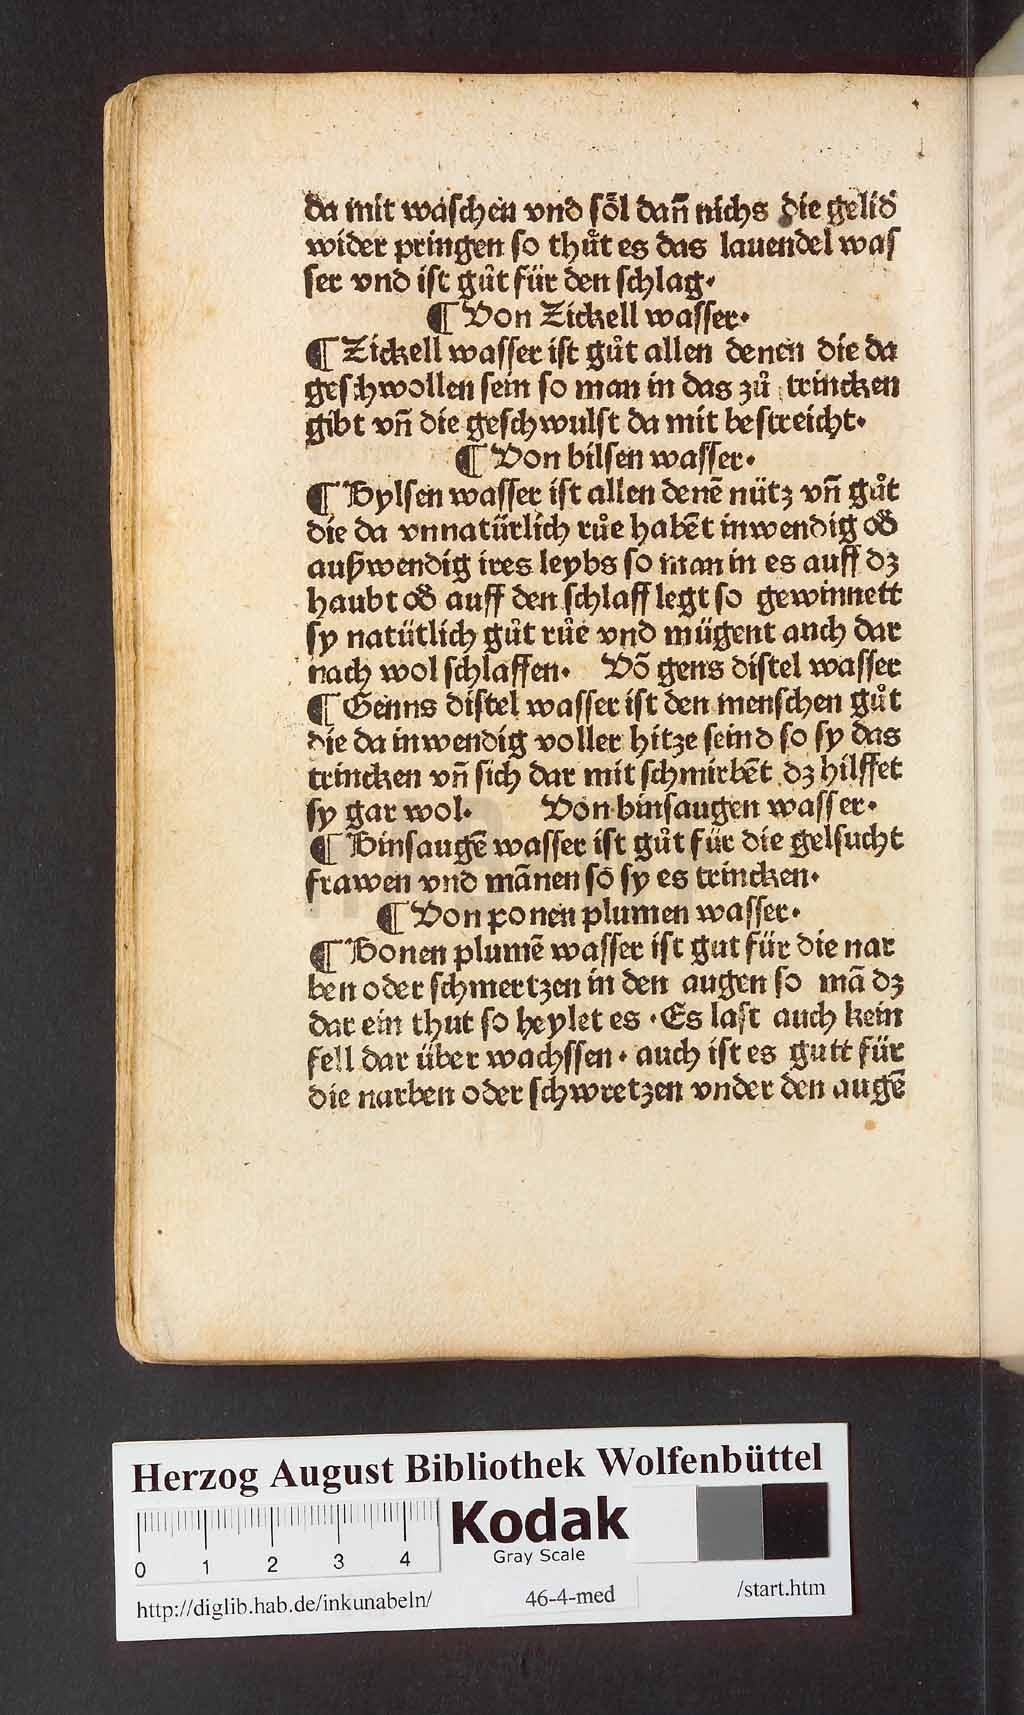 da mit waschen vnd sol̄ dañ nichs die gelid
wider pringen so thůt es das lauendel was
ser vnd ist gůt für den schlag.
¶ Von Zickell wasser.
¶ Zickell wasser ist gůt allen denen die da
geschwollen sein so man in das zů trincken
gibt vñ die geschwulst da mit bestreicht.
¶ Von bilsen wasser.
¶ Bylsen wasser ist allen denē nütz vñ gůt
die da vnnatürlich růe habēt inwendig oď
außwendig ires leybs so man in es auff dz
haubt oď auff den schlaff legt so gewinnett
sy natütlich gůt růe vnd mügent auch dar
nach wol schlaffen. Võ gens distel wasser
¶ Genns distel wasser ist den menschen gůt
die da inwendig voller hitze seind so sy das
trincken vñ sich dar mit schmirbēt dz hilffet
sy gar wol. Von binsaugen wasser.
¶ Binsaugē wasser ist gůt für die gelsucht
frawen vnd mānen so sy es trincken.
¶ Von ponen plumen wasser.
¶ Bonen plumē wasser ist gut für die nar
ben oder schmertzen in den augen so mā dz
dar ein thut so heylet es . Es last auch kein
fell dar über wachssen . auch ist es gutt für
die narben oder schwretzen vnder den augē
Herzog August Bibliothek Wolfenbüttel
Kodak
Gray Scale
0 1 2 3 4
http://diglib.hab.de/inkunabeln/ 46-4-med /start.htm